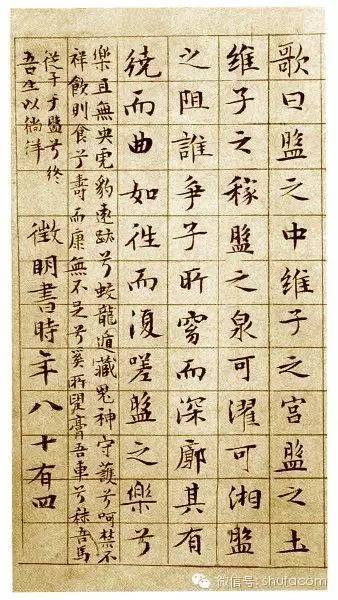 歌曰盤之中維子之宮盤之土
維子之稼盤之泉可濯可湘盤
之阻誰爭子所窈而深廓其有
繞而曲如往而復嗟盤之樂兮
樂且無央虎豹遠跡兮蛟龍遁藏鬼神守護兮呵禁不
祥飲則食兮壽而康無不足兮奚所望膏吾車兮秣吾馬
從子于盤兮終
吾生以徜徉
徵明書時年八十有四
微信号: shufacom